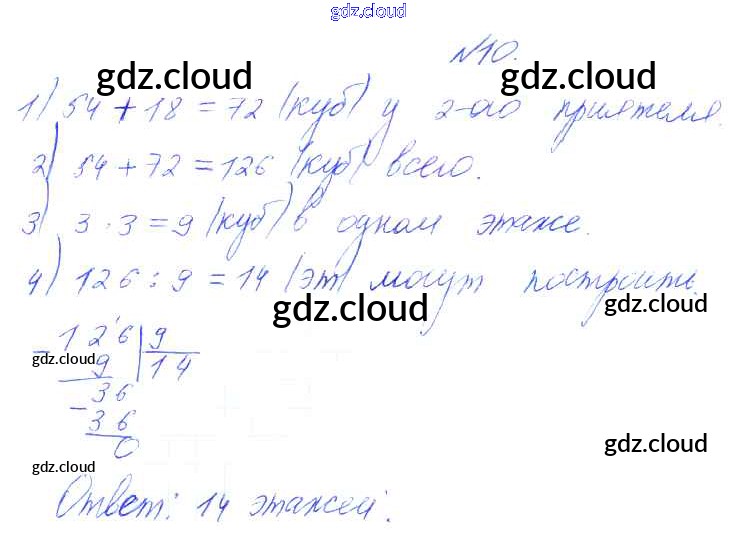 gdz.cloud
№10.
gdz.cloud gdz.cloud
1) 54 + 18 = 72 (куб) у 2-ого приятеля.
2) 54 + 72 = 126 (куб) всего.
3) 3 · 3 = 9 (куб) в одном этаже.
4) 126 : 9 = 14 (эт) могут построить.
gdz.cloud gdz.cloud
126 | 9
gdz.cloud
- 9 | 14
36
- 36
0
gdz.cloud
gdz.cloud
Ответ: 14 этажей.